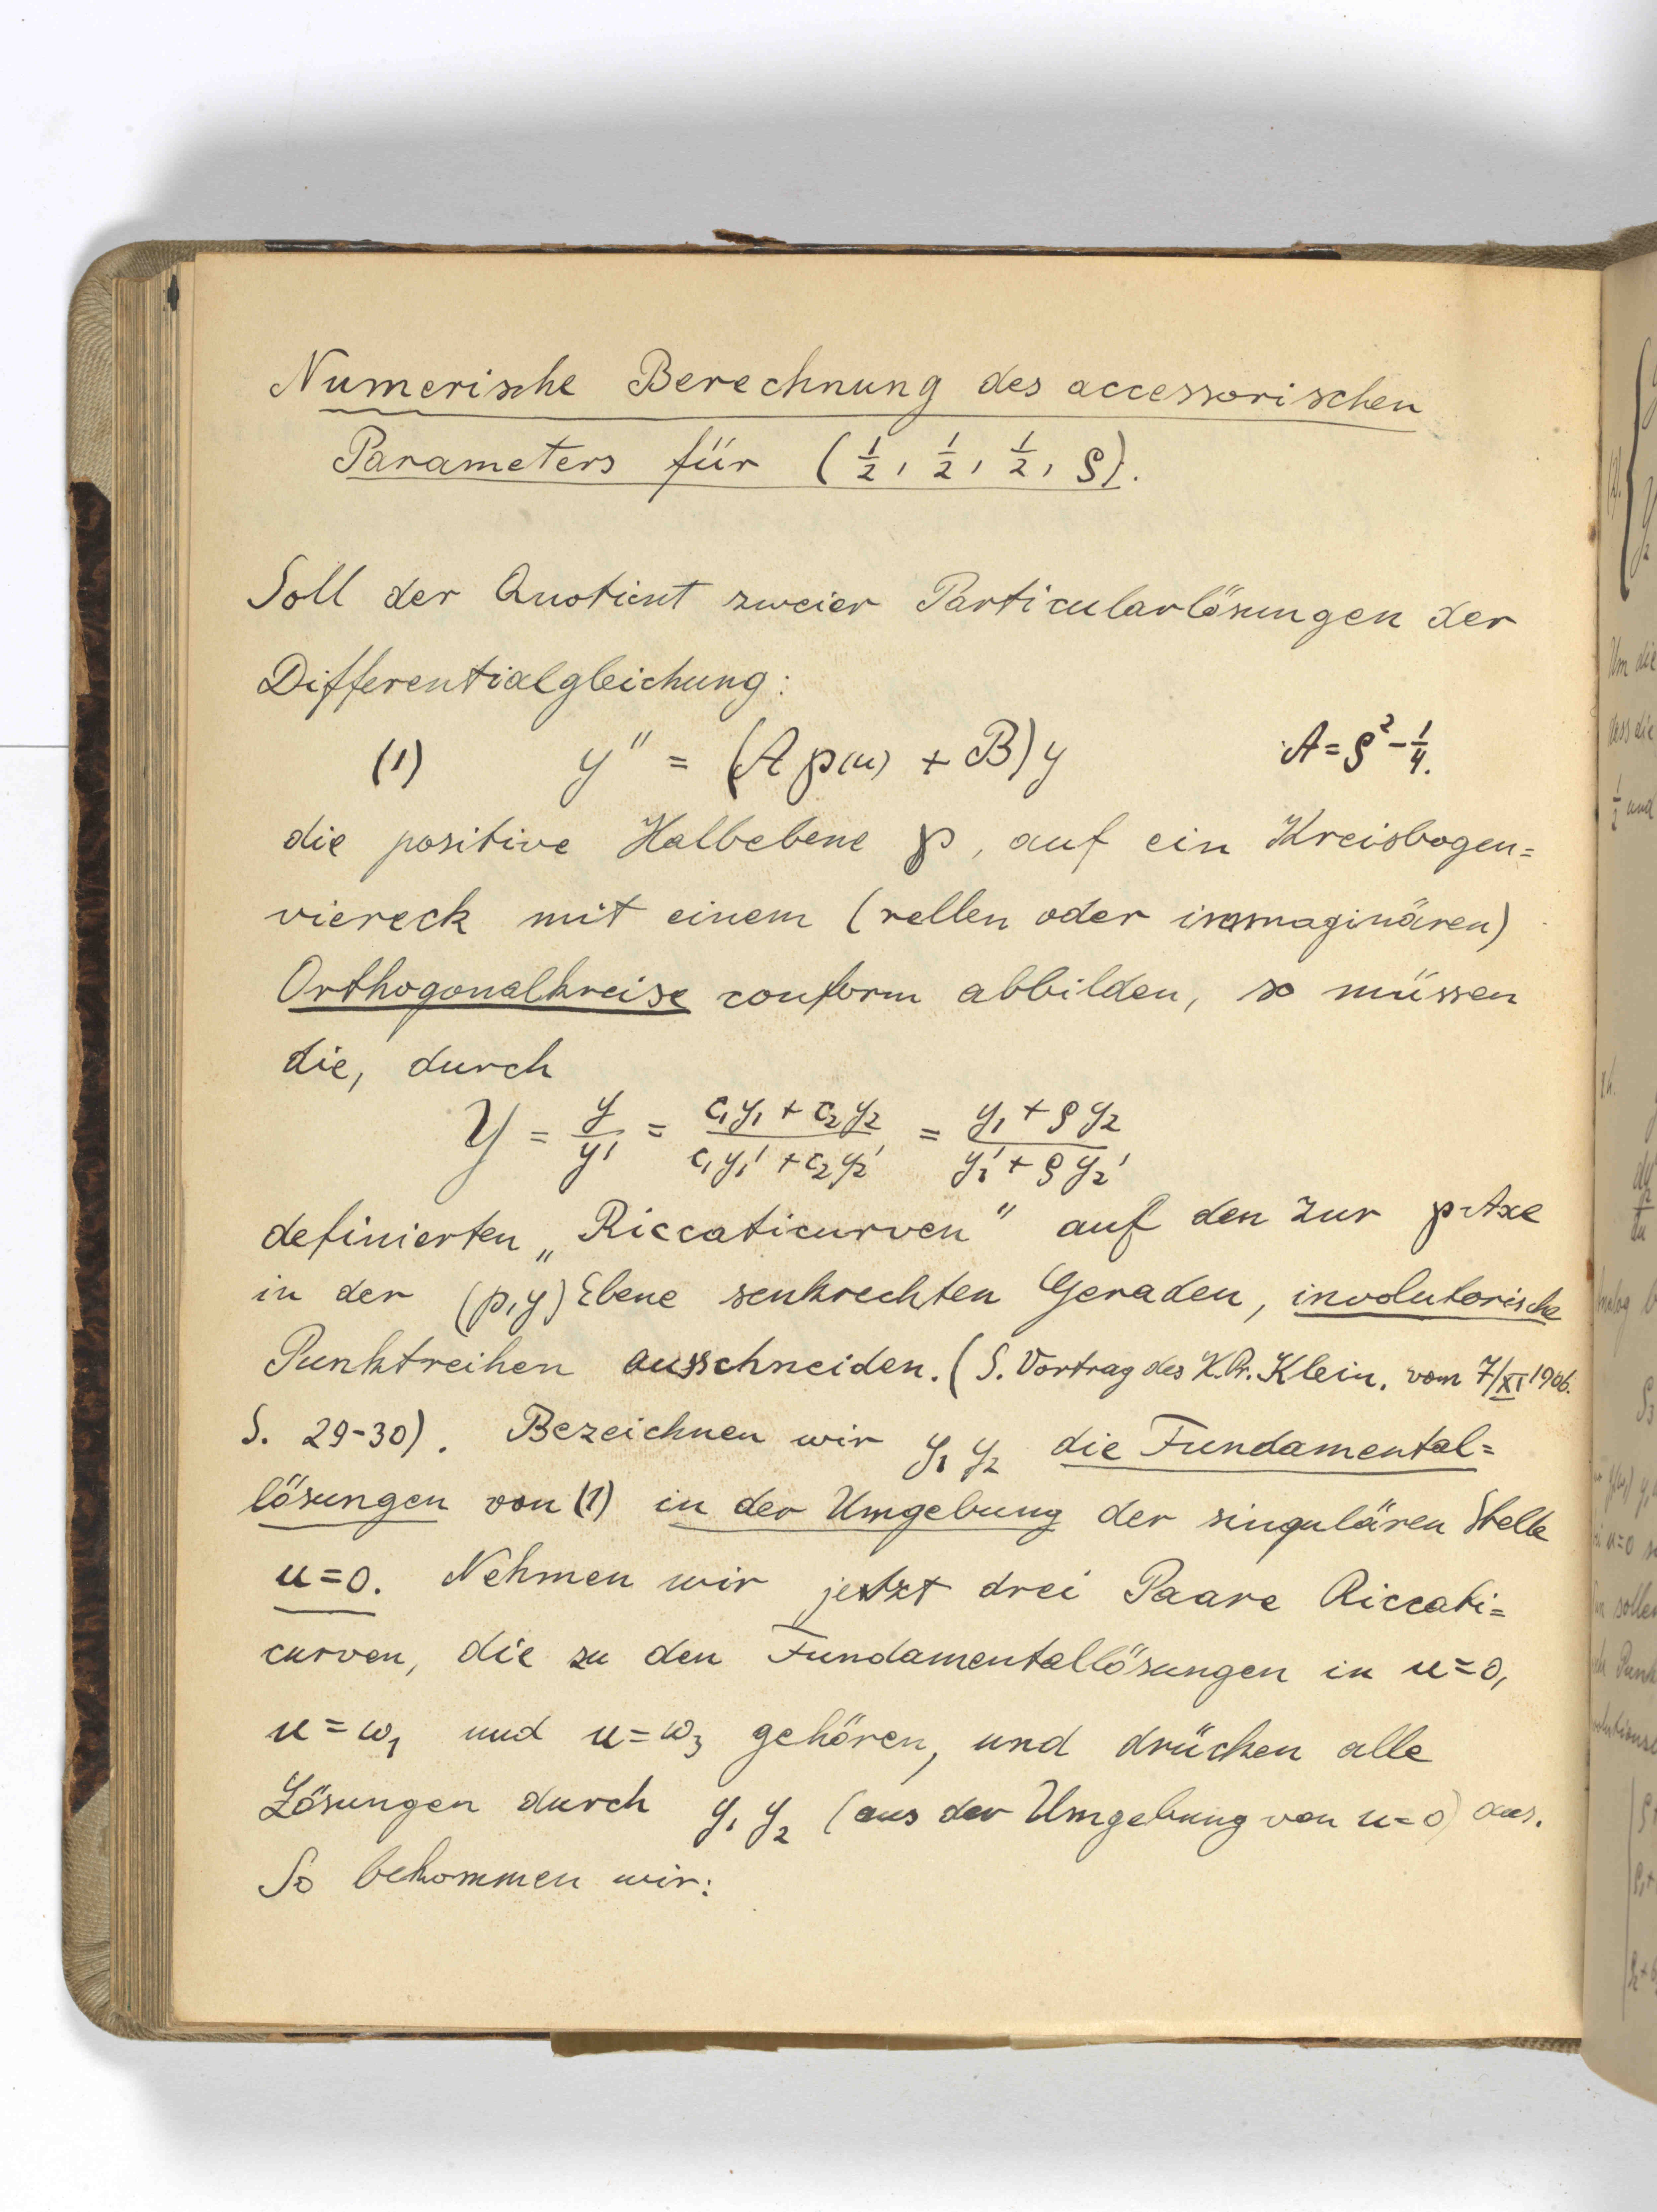 Numerische Berechnung des accessorischen
Parameters für (½, ½, ½, ϱ).
Soll der Quotient zweier Particularlösungen der
Differentialgleichung:
(1) y'' = (A ℘(u) + B) y A = ϱ² - ¼.
die positive Halbebene ℘, auf ein Kreisbogen=
viereck mit einem (rellen oder immaginären)
Orthogonalkreise conform abbilden, so müssen
die, durch
Y = y/y' = (c₁y₁ + c₂y₂)/(c₁y₁' + c₂y₂') = (y₁ + ϱy₂)/(y₁' + ϱy₂')
definierten „Riccaticurven" auf den zur ℘-Axe
in der (p,y) Ebene senkrechten Geraden, involutorische
Punktreihen ausschneiden. (S. Vortrag des H. Pr. Klein, vom 7/XI 1906.
S. 29-30). Bezeichnen wir y₁ y₂ die Fundamental=
lösungen von (1) in der Umgebung der singulären Stelle
u=0. Nehmen wir jetzt drei Paare Riccati=
curven, die zu den Fundamentallösungen in u=0,
u=ω₁ und u=ω₃ gehören, und drücken alle
Lösungen durch y₁ y₂ (aus der Umgebung von u=0) aus.
So bekommen wir: